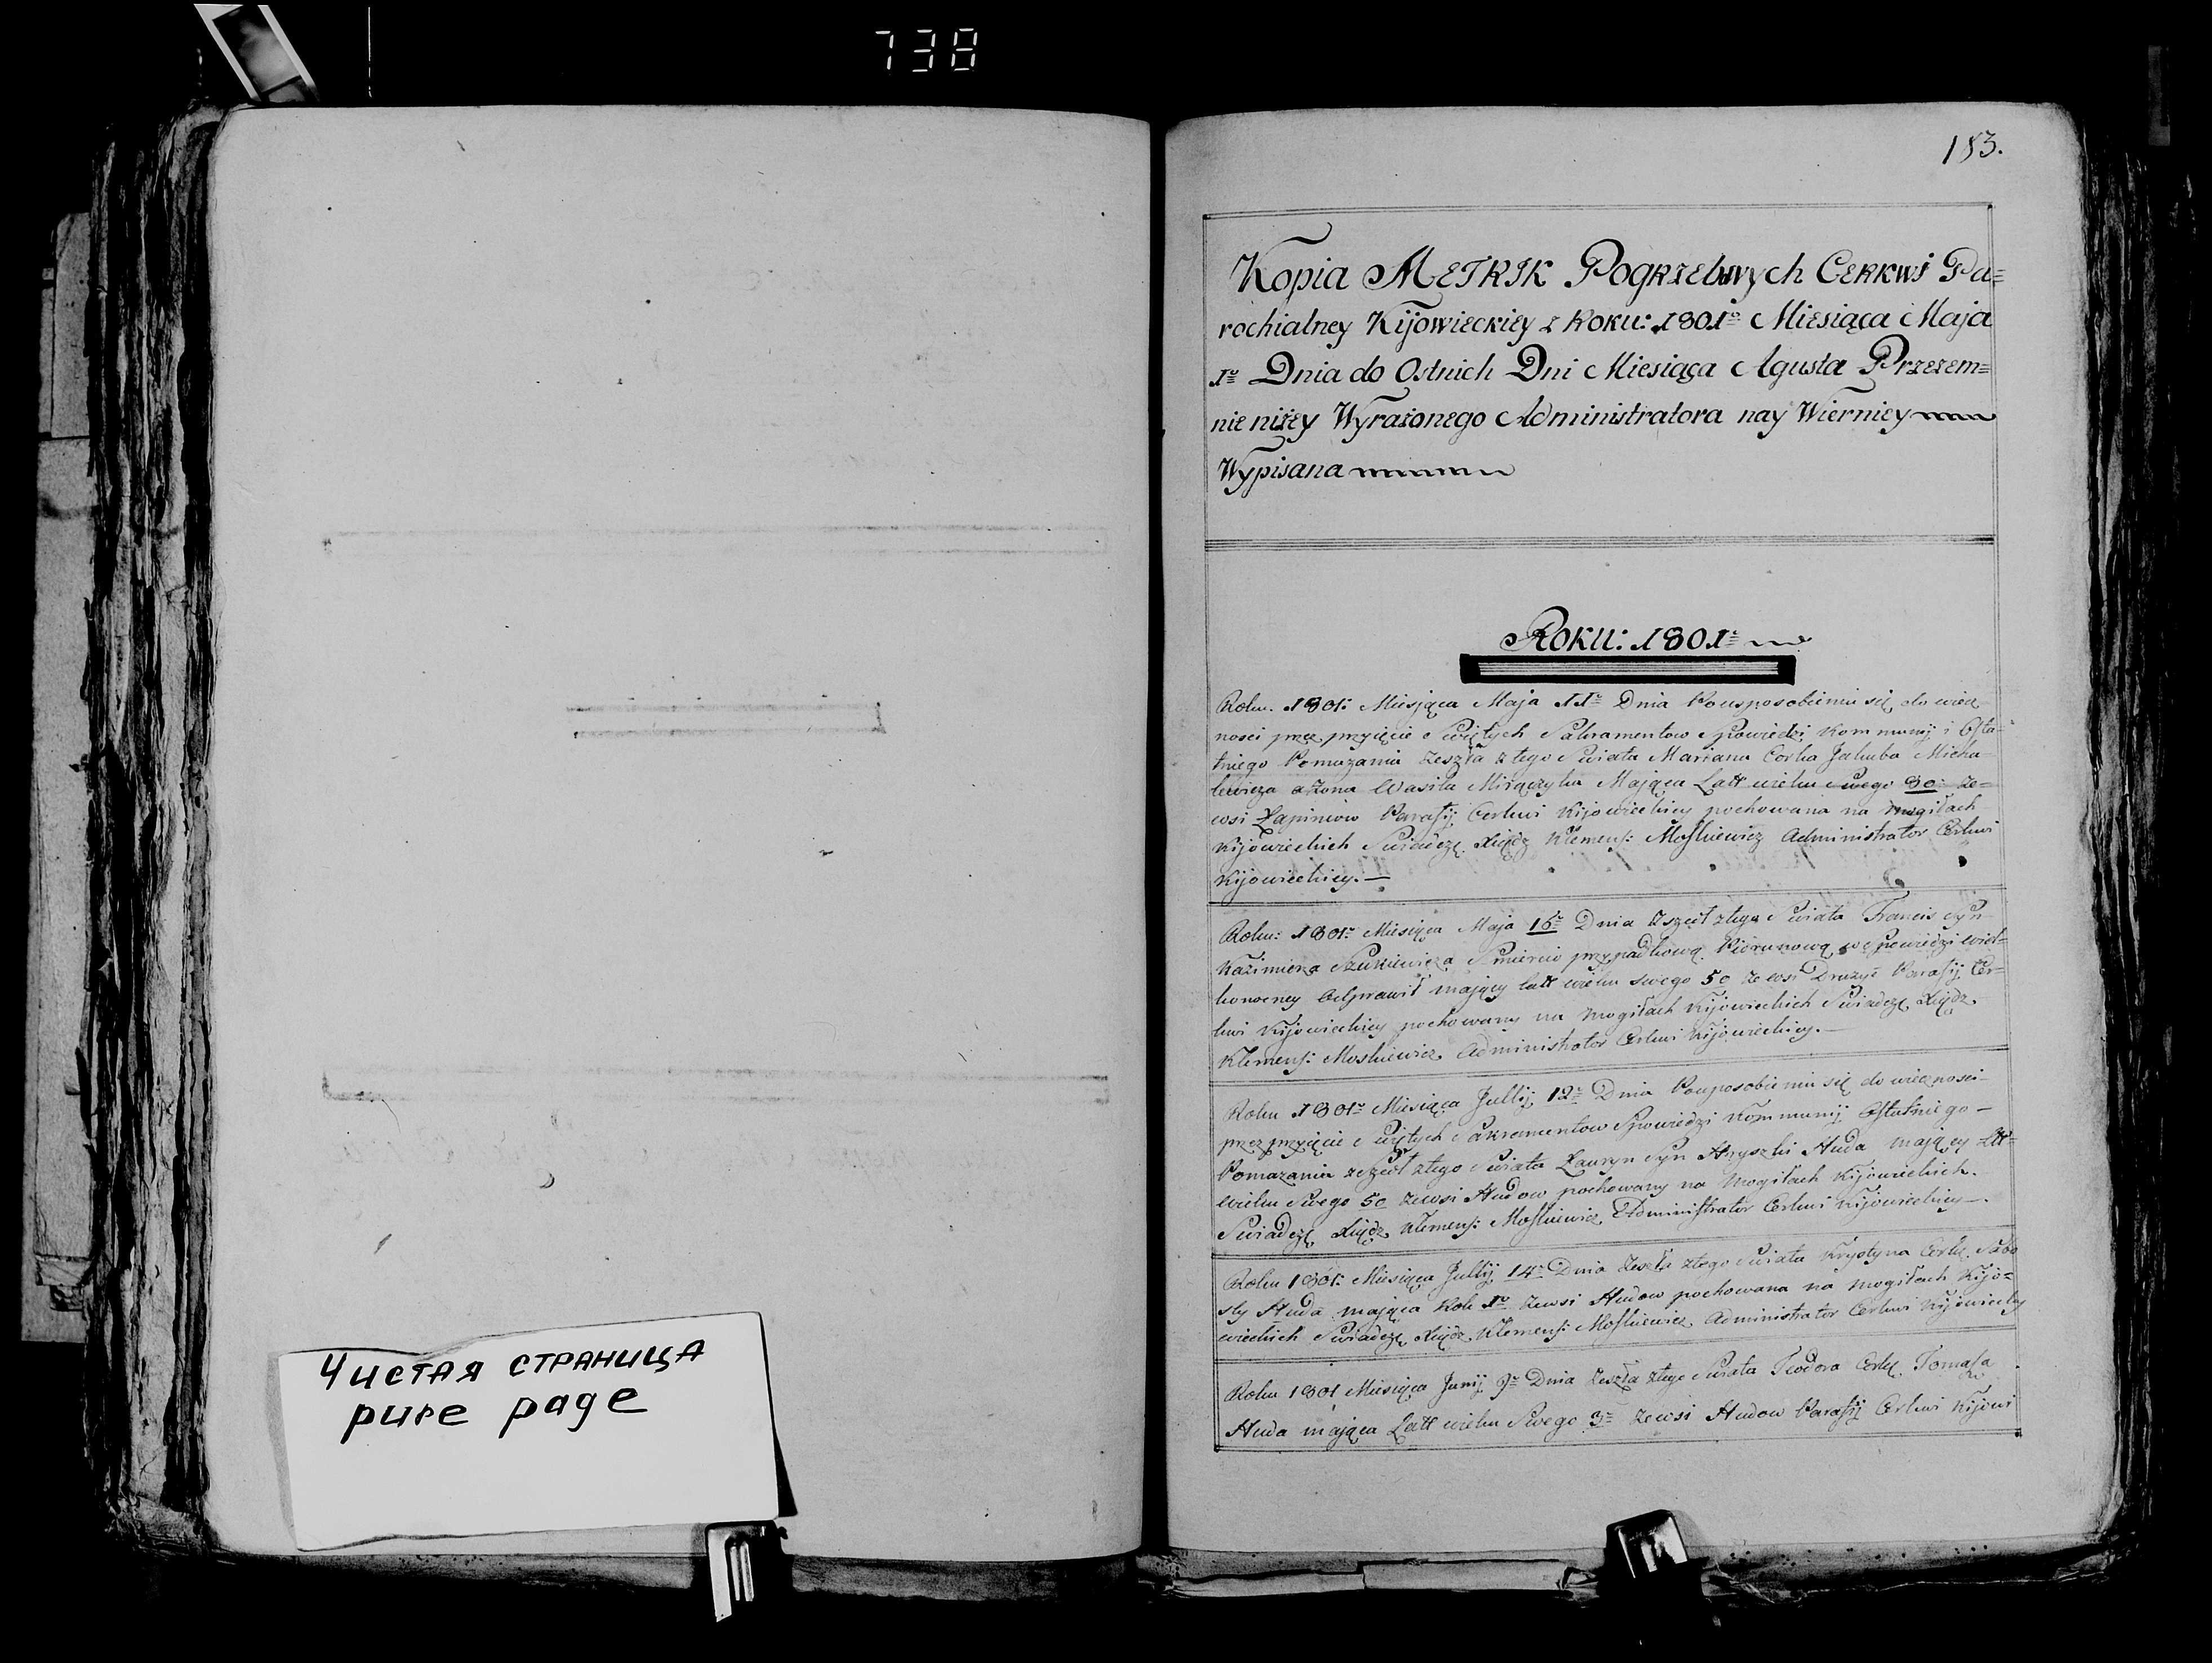 738
Чистая страница
pure page
183.
Kopia Metrik Pogrzebnych Cerkwi Pa=
rochialney Kijowieckiey z Roku: 1801o Miesiąca Maja
1o Dnia do Ostnich Dni Miesiąca Agusta Przezem=
nie niżey Wyrażonego Administratora nay Wierniey
Wypisana
Roku: 1801:
Roku. 1801: Miesjąca Maja 11o Dnia Pousposobieniu się do wiecz
nosci przez przyięcie Swiętych Sakramentow Spowiedzi Kommunij i Osta=
tniego Pomazania Zeszła z tego Swiata Marianu Corka Jakuba Micha
lewicza a Zona Wasila Mirączyka Mająca Latt wieku swego 80: ze=
wsi Łapiniow Parafij Cerkwi Kijowieckiey pochowana na mogiłach
Kijowieckich Swiadczę Xiądz Klemens: Moskiewicz Administrator Cerkwi
Kijowieckiey.—
Roku: 1801o Miesiąca Maja 16o Dnia Zszedł z tego Swiata Francis Syn
Kazimierza Szukiewicza Smiercio przypadkową Piorunową Spowiedzi wiel=
konocney Odprawił mający latt wieku swego 50 ze wsi Drużyś Parafij Cer=
kwi Kijowieckiey pochowany na mogiłach Kijowieckich Swiadczę Xiądz
Klemens: Moskiewicz Administrator Cerkwi Kijowieckiey.—
Roku 1801o Miesiąca Jullij 12o Dnia Pousposobieniu się do wiecznosci
przez przyięcie Swiętych Sakramentow Spowiedzi Kommunij Ostatniego —
Pomazania zeszedł z tego Swiata Łauryn Syn Hryszki Huda mający Latt=
wieku Swego 50 zewsi Hudow pochowany na Mogiłach Kijowieckich.
Swiadczę Xiądz Klemens: Moskiewicz Administrator Cerkwi Kijowieckiey —.
Roku 1801: Miesiąca Jullij 14o Dnia Zeszła z tego Swiata Krystyna Cork. Sabo
sty Huda mająca Rok 1o zewsi Hudow pochowana na mogiłach Kijo=
wieckich Swiadczę Xiądz Klemens: Moskiewicz Administrator Cerkwi Kijowieckiey
Roku 1801 Miesiąca Junij 9o Dnia Zeszła z tego Swiata Teodora Cork. Tomasza
Huda mająca Latt wieku Swego 3o zewsi Hudow Parafij Cerkwi Kijowi